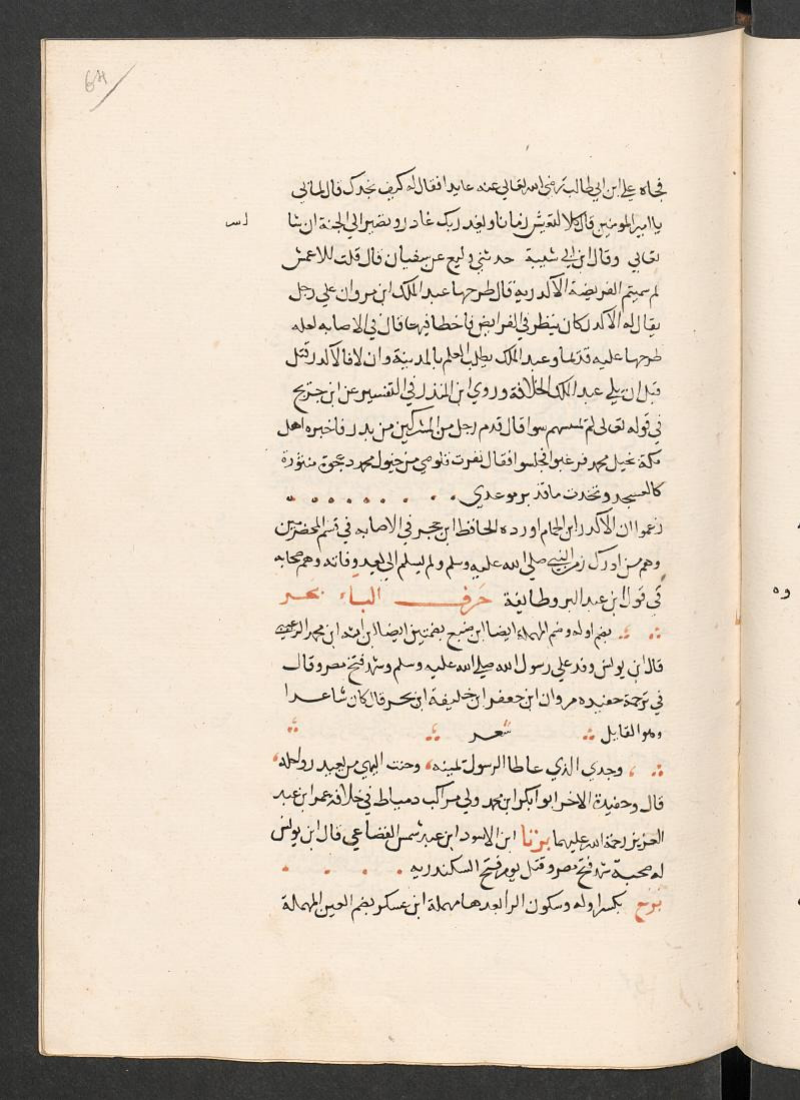 64
فجاه علي ابن ابي طالب رضي الله تعالى عنه عايدا فقال له كيف نجدك قال لما بي
يا امير المومنين قال كلا لتعيش زمانا ويغدر بك غادر وتصير الي الجنة ان شا
الله
تعالي وقال ابن ابي شيبة حدثني وكيع عن سفيان قال قلت للاعمش
لم سميتم الفريضة الاكدرية قال طرحها عبد الملك ابن مروان علي رجل
يقال له الاكدر كان ينظر في الفرايض فاخطا فيها قال في الاصابه لعله
طرحها عليه قديما وعبد الملك يطلب العلم بالمدينة وان لا فالاكدر قتل
قبل ان يلي عبد الملك الخلافة وروي ابن المنذر في التفسير عن ابن جريج
في قوله تعالى لم يمسسهم سوا قال قدم رجل من المشركين من بدر فاخبره اهل
مكة بخيل محمد فرعبوا فجلسوا فقال نفرت قلوصي من خيول محمد وعجوة منثورة
كالعسجد وتخذت ما قديد موعدي
زعموا ان الاكدر ابن الحمام اورده الحافظ ابن حجر في الاصابه في قسم المخضرمين
وهم من ادرك زمن النبي صلي الله عليه وسلم ولم يسلم الي بعد وفاته وهم صحابه
في قول ابن عبد البر وطايفة حرف الباء بحر
بضم اوله وضم المهملة ايضا ابن ضبع بضمتين ايضا ابن امته ابن محمد الرعيني
قال ابن يونس وفد علي رسول الله صلي الله عليه وسلم وشهد فتح مصر وقال
في ترجمة حفيده مروان ابن جعفر ابن خليفة ابن بحر قال كان شاعرا
وهو القايل شعر
وجدي الذي عاطا الرسول يمينه وحنت اليه من بعيد رواحله
قال وحفيده الاخر ابو ابكر ابن محمد ولي مراكب دمياط في خلافة عمر ابن عبد
العزيز رحمة الله عليهما برتا ابن الاسود ابن عبد شمس القضاعي قال ابن يونس
له صحبة شهد فتح مصر وقتل يوم فتح السكندريه
برح بكسر اوله وسكون الرا بعدها مهملة ابن عسكر بضم العين المهملة
وه